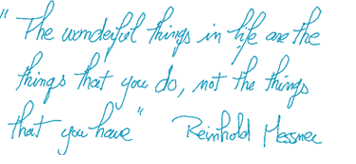 "The wonderful things in life are the
things that you do, not the things
that you have" Reinhold Messner